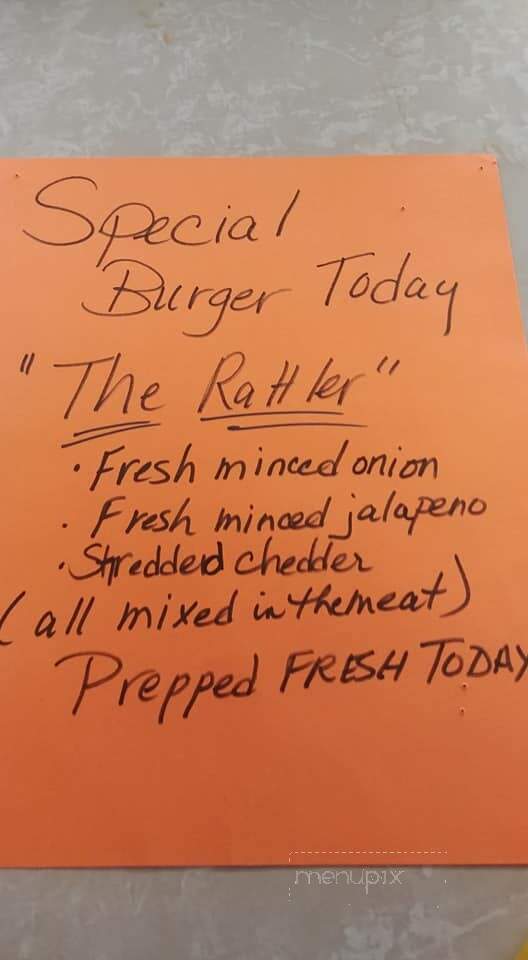 Special
Burger Today
"The Rattler"
• Fresh minced onion
• Fresh minced jalapeno
• Shredded chedder
(all mixed in the meat)
Prepped FRESH TODAY
menupix